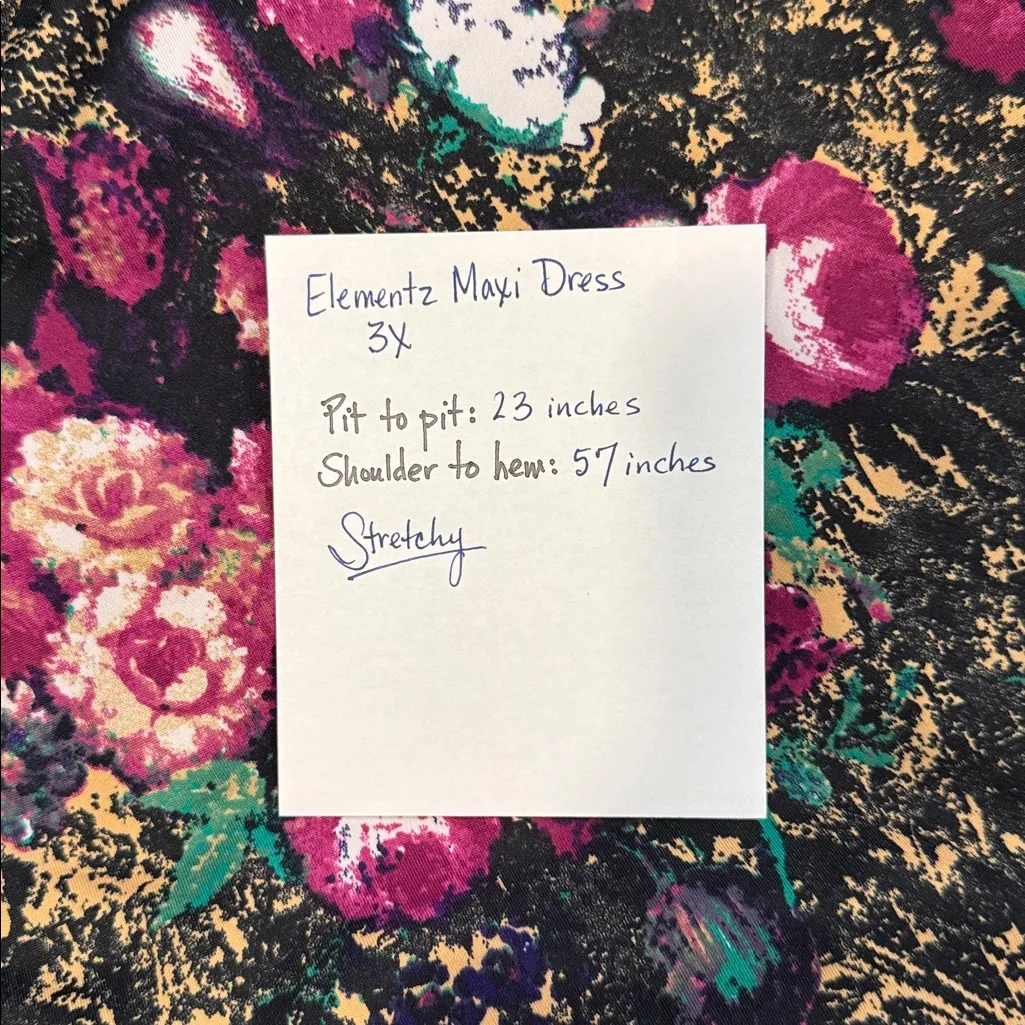 Elementz Maxi Dress
3X
Pit to pit: 23 inches
Shoulder to hem: 57 inches
Stretchy